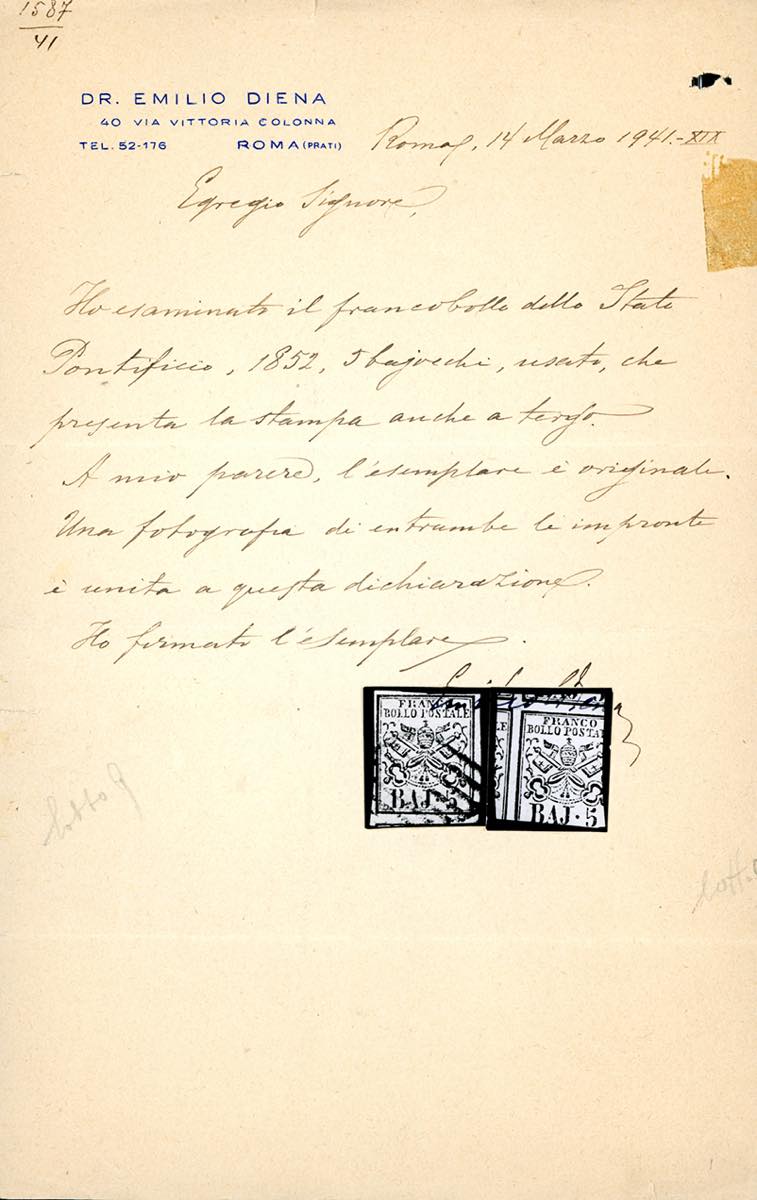 1587
41
DR. EMILIO DIENA
40 VIA VITTORIA COLONNA
TEL. 52-176 ROMA (PRATI)
Roma, 14 Marzo 1941.-XIX
Egregio Signore,
Ho esaminato il francobollo dello Stato
Pontificio, 1852, 5 bajocchi, usato, che
presenta la stampa anche a tergo.
A mio parere, l'esemplare è originale.
Una fotografia di entrambe le impronte
è unita a questa dichiarazione.
Ho firmato l'esemplare.
Emilio Diena
FRANCO
BOLLO POSTALE
BAJ·5
FRANCO
BOLLO POSTA
BAJ·5
lotto 9